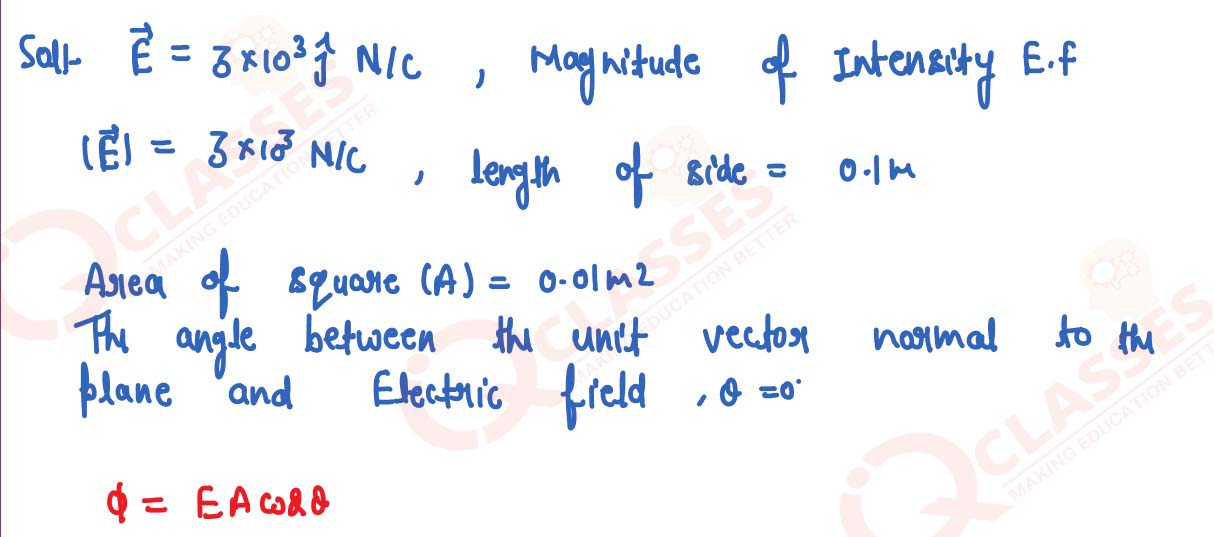 Soln E⃗ = 3×10³ ĵ N/C , Magnitude of Intensity E.f
|E⃗| = 3×10³ N/C , length of side = 0.1m
Area of square (A) = 0.01m2
The angle between the unit vector normal to the
plane and Electric field , θ =0°
ϕ = EA cosθ
CLASSES
MAKING EDUCATION BETTER
CLASSES
MAKING EDUCATION BETTER
CLASSES
MAKING EDUCATION BETTER